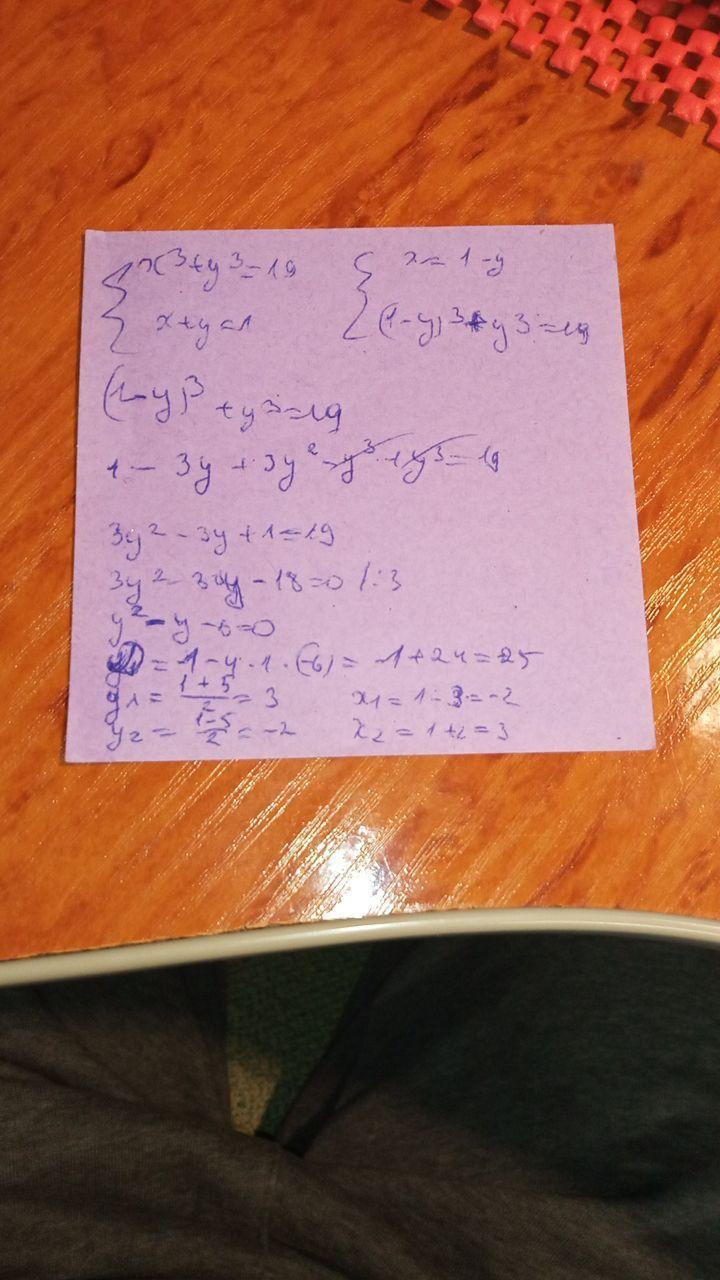 { x³+y³=19 { x = 1-y
x+y=1 (1-y)³+y³=19
(1-y)³ +y³=19
1 - 3y + 3y² - y³ + y³ = 19
3y² - 3y + 1 = 19
3y² - 3y - 18 = 0 /:3
y² - y - 6 = 0
= 1 - 4·1·(-6) = 1 + 24 = 25
y₁ = (1+5)/2 = 3 x₁ = 1-3 = -2
y₂ = (1-5)/2 = -2 x₂ = 1+2 = 3